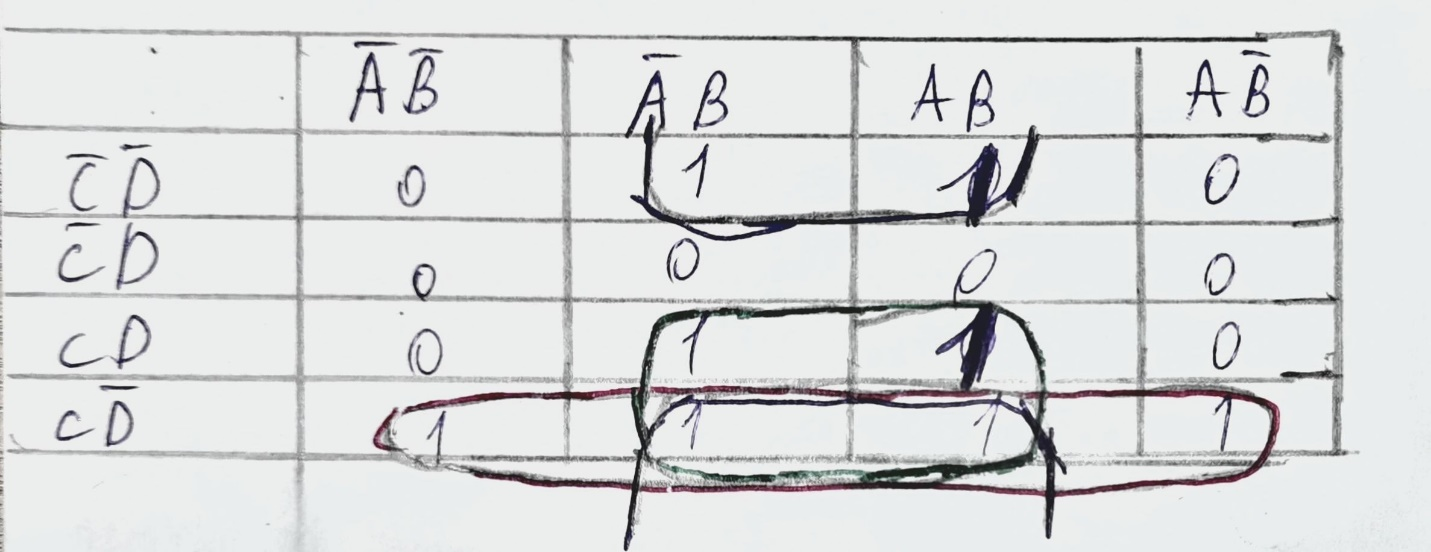 A̅ B̅ A̅ B A B A B̅
C̅ D̅ 0 1 1 0
C̅ D 0 0 0 0
C D 0 1 1 0
C D̅ 1 1 1 1